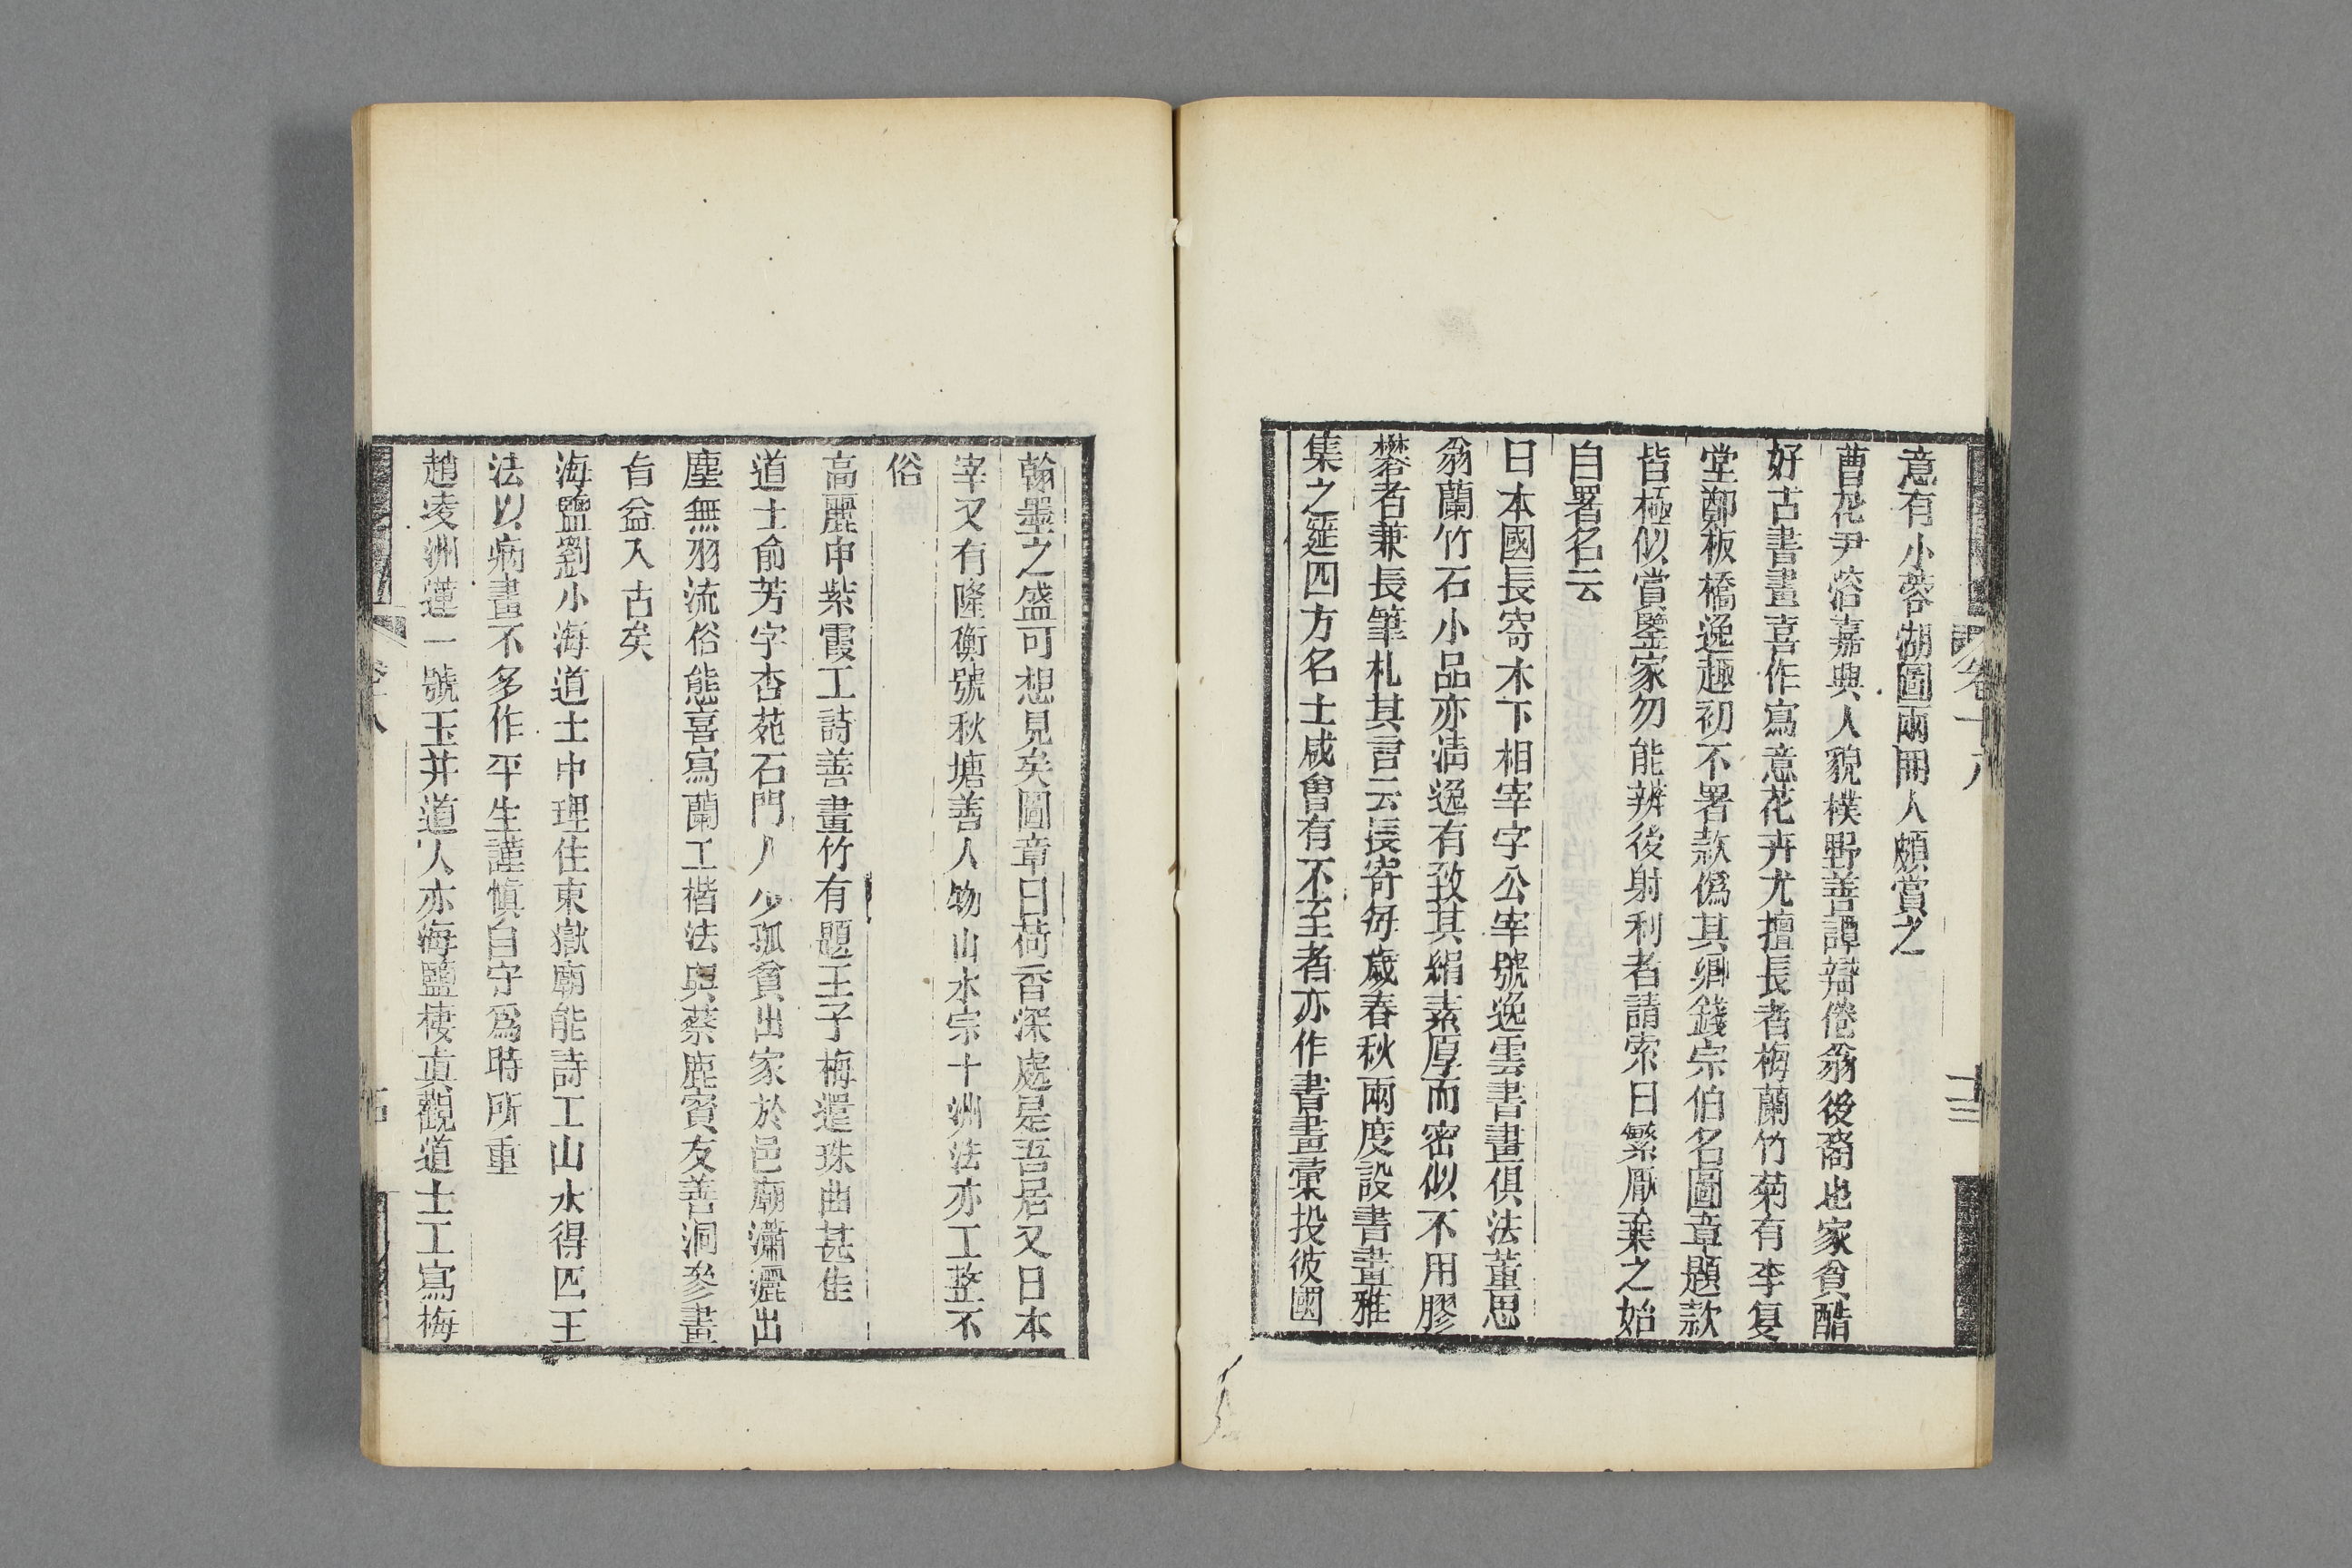 意有小蓉湖圖兩開人頗賞之
曹花尹溶嘉興人貌樸野善譚辯倦翁後裔也家貧酷
好古書畫喜作寫意花卉尤擅長者梅蘭竹菊有李复
堂鄭板橋逸趣初不署款僞其鄉錢宗伯名圖章題款
皆極似賞鑒家勿能辨後射利者請索日繁厭棄之始
自署名云
日本國長寄木下相宰字公宰號逸雲書畫俱法董思
翁蘭竹石小品亦淸逸有致其絹素厚而密似不用膠
礬者兼長筆札其言云長寄每歲春秋兩度設書畫雅
集之筵四方名士咸會有不至者亦作書畫彙投彼國
卷十八
十三
翰墨之盛可想見矣圖章曰荷香深處是吾居又日本
宰又有隆衡號秋塘善人物山水宗十洲法亦工整不
俗
高麗申紫霞工詩善畫竹有題王子梅還珠曲甚佳
道士俞芳字杏苑石門人少孤貧出家於邑廟瀟灑出
塵無羽流俗態喜寫蘭工楷法與蔡鹿賓友善洞參畫
旨益入古矣
海鹽劉小海道士中理住東嶽廟能詩工山水得四王
法以病畫不多作平生謹愼自守爲時所重
趙凌洲蓮一號玉井道人亦海鹽棲眞觀道士工寫梅